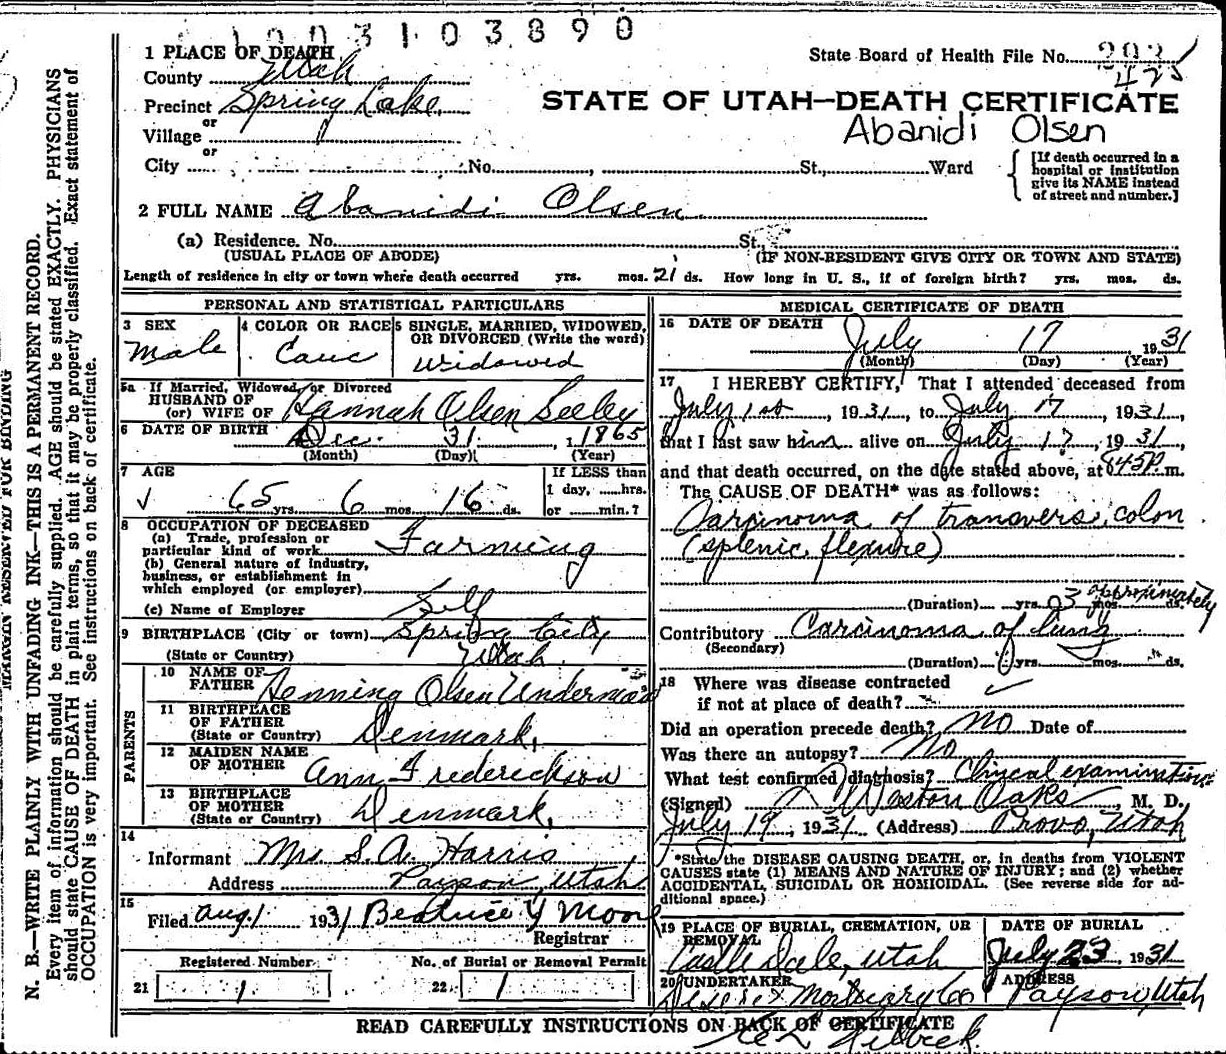 1003103890
1 PLACE OF DEATH
State Board of Health File No.
425
County Utah
Precinct Spring Lake
or
Village
or
City No. St., Ward
STATE OF UTAH—DEATH CERTIFICATE
Abanidi Olsen
[If death occurred in a
hospital or institution
give its NAME instead
of street and number.]
2 FULL NAME Abanidi Olsen
(a) Residence. No. St.
(USUAL PLACE OF ABODE) (IF NON-RESIDENT GIVE CITY OR TOWN AND STATE)
Length of residence in city or town where death occurred yrs. mos. 21 ds. How long in U. S., if of foreign birth? yrs. mos. ds.
PERSONAL AND STATISTICAL PARTICULARS
3 SEX
Male
4 COLOR OR RACE
Cauc
5 SINGLE, MARRIED, WIDOWED,
OR DIVORCED (Write the word)
Widowed
5a If Married, Widowed, or Divorced
HUSBAND OF
(or) WIFE OF Hannah Olsen Seeley
6 DATE OF BIRTH Dec. 31, 1865
(Month) (Day) (Year)
7 AGE
65 yrs. 6 mos. 16 ds.
If LESS than
1 day, hrs.
or min.?
8 OCCUPATION OF DECEASED
(a) Trade, profession or
particular kind of work Farming
(b) General nature of industry,
business, or establishment in
which employed (or employer)
(c) Name of Employer Self
9 BIRTHPLACE (City or town) Spring City
(State or Country) Utah
PARENTS
10 NAME OF
FATHER Henning Olsen
11 BIRTHPLACE
OF FATHER
(State or Country) Denmark,
12 MAIDEN NAME
OF MOTHER Ann Frederickson
13 BIRTHPLACE
OF MOTHER
(State or Country) Denmark,
14
Informant Mrs S. A. Harris
Address Payson, Utah
15
Filed Aug 1 1931 Beatrice Y Moore
Registrar
Registered Number No. of Burial or Removal Permit
21 1 22 1
MEDICAL CERTIFICATE OF DEATH
16 DATE OF DEATH
July 17 1931
(Month) (Day) (Year)
17 I HEREBY CERTIFY, That I attended deceased from
July 1st, 1931, to July 17, 1931,
that I last saw him alive on July 17, 1931
and that death occurred, on the date stated above, at m.
The CAUSE OF DEATH* was as follows:
Carcinoma of transvers. colon
(splenic flexure)
(Duration) yrs. 03 mos. ds. approximately
Contributory Carcinoma of lung
(Secondary)
(Duration) yrs. mos. ds.
18 Where was disease contracted
if not at place of death?
Did an operation precede death? no Date of
Was there an autopsy? No
What test confirmed diagnosis? Clinical examination
(Signed) Weston Oaks, M. D.
July 19, 1931 (Address) Provo, Utah
*State the DISEASE CAUSING DEATH, or, in deaths from VIOLENT
CAUSES state (1) MEANS AND NATURE OF INJURY; and (2) whether
ACCIDENTAL, SUICIDAL OR HOMICIDAL. (See reverse side for ad-
ditional space.)
19 PLACE OF BURIAL, CREMATION, OR
REMOVAL
Castle Dale, Utah
DATE OF BURIAL
July 23 1931
20 UNDERTAKER
Deseret Mortuary Co
ADDRESS
Payson, Utah
READ CAREFULLY INSTRUCTIONS ON BACK OF CERTIFICATE
MARGIN RESERVED FOR BINDING
N. B.—WRITE PLAINLY WITH UNFADING INK—THIS IS A PERMANENT RECORD.
Every item of information should be carefully supplied. AGE should be stated EXACTLY. PHYSICIANS
should state CAUSE OF DEATH in plain terms, so that it may be properly classified. Exact statement of
OCCUPATION is very important. See instructions on back of certificate.